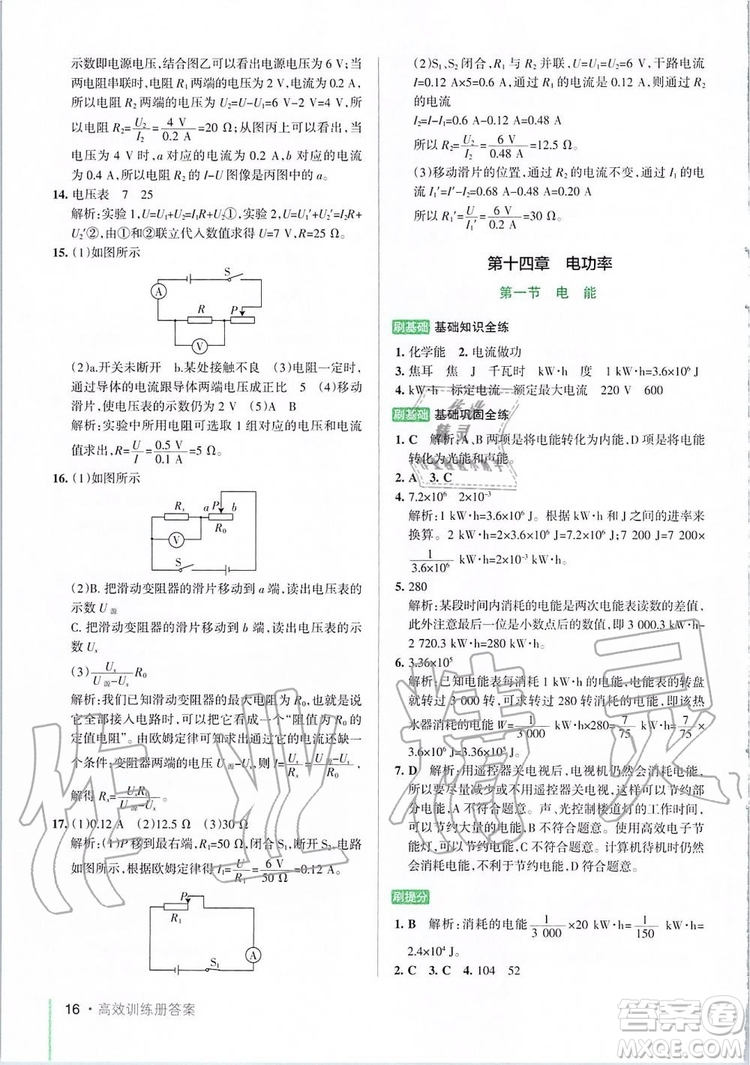 示数即电源电压，结合图乙可以看出电源电压为 6 V；当
两电阻串联时，电阻 R₁ 两端的电压为 2 V，电流为 0.2 A，
所以电阻 R₂ 两端的电压为 U₂=U-U₁=6 V-2 V=4 V，
所以电阻 R₂=U₂/I₂=4 V/0.2 A=20 Ω；从图丙上可以看出，当
电压为 4 V 时，a 对应的电流为 0.2 A，b 对应的电流为
0.4 A，所以电阻 R₂ 的 I-U 图像是丙图中的 a。
14. 电压表 7 25
解析：实验 1，U=U₁+U₂=I₁R+U₂①，实验 2，U=U₁′+U₂′=I₂R+
U₂′②，由①和②联立代入数值求得 U=7 V，R=25 Ω。
15. (1)如图所示
S
A
R P
V
(2)a.开关未断开 b.某处接触不良 (3)电阻一定时，
通过导体的电流跟导体两端电压成正比 5 (4)移动
滑片，使电压表的示数仍为 2 V (5)A
解析：实验中所用电阻可选取 1 组对应的电压与电流
数值求出：R=U/I=0.5 V/0.1 A=5 Ω。
16. (1)如图所示
Rₓ a P b
V R₀
S
(2)B. 把滑动变阻器的滑片移动到 a 端，读出电压表的
示数 U源
C. 把滑动变阻器的滑片移动到 b 端，读出电压表的
示数 Uₓ
(3)Uₓ/(U源-Uₓ)R₀
解析：我们已知滑动变阻器的最大电阻为 R₀，将它
全部接入电路时，就找到了一个“阻值为 R₀ 的
定值电阻”。由欧姆定律可知求电阻大小还缺一
个条件：变阻器两端的电压 U源-Uₓ，所以 I=(U源-Uₓ)/R₀=
Uₓ/Rₓ，Rₓ=UₓR₀/(U源-Uₓ)。
17. (1)0.12 A (2)12.5 Ω (3)30 Ω
解析：(1)P 移到最右端，R₁=50 Ω，闭合 S₁，断开 S₂，电路
如图所示，根据欧姆定律得 I₁=U/R₁=6 V/50 Ω=0.12 A。
P
R₁
A
S₁
16·高效训练册答案
(2)S₁、S₂ 闭合，R₁ 与 R₂ 并联，U=6 V，干路电流
I=0.12 A×5=0.6 A，通过 R₁ 的电流是 0.12 A，通过 R₂
的电流
I₂=I-I₁=0.6 A-0.12 A=0.48 A
所以 R₂=U/I₂=6 V/0.48 A=12.5 Ω。
(3)移动滑片的位置，通过 R₂ 的电流不变，通过 R₁ 的电流
I₁′=I′-I₂=0.68 A-0.48 A=0.2 A
所以 R₁′=U/I₁′=6 V/0.2 A=30 Ω。
第十四章 电功率
第一节 电 能
刷基础 基础知识全练
1. 化学能 2. 电流做功
3. 焦耳 焦 J 千瓦时 kW·h 度 3.6×10⁶
4. kW·h 标定电流 额定最大电流 220 V 600
刷基础 基础巩固全练
1. C 解析：A、B 两项是将电能转化为内能，D 项是将电能
转化为光能和声能。
2. A 3. C
4. 7.2×10⁶ 2×10⁻³
解析：1 kW·h=3.6×10⁶ J。根据 kW·h 和 J 之间的进率来
换算。2 kW·h=2×3.6×10⁶ J=7.2×10⁶ J；7 200 J=7 200×
1/3.6×10⁶ kW·h=2×10⁻³ kW·h。
5. 280
解析：某段时间内消耗的电能是两次电能表读数的差值，
此外注意最后一位是小数点后的数值，即 3 000.3 kW·h-
2 720.3 kW·h=280 kW·h。
6. 3.36×10⁵
解析：已知电能表每消耗 1 kW·h 的电能，电能表的转盘
就转过 3 000 转，可求转过 280 转消耗的电能，即该热
水器消耗的电能 W=1/3 000 kW·h×280=7/75 kW·h=7/75×
3.6×10⁶ J=3.36×10⁵ J。
7. D 解析：用遥控器关电视后，电视机仍然会消耗电能，
所以要尽量减少或不用遥控器关电视，可以节约这部
分电能，A 不符合题意。声、光控制楼道灯的工作时间，可
以节约大量的电能，B 不符合题意。使用高效电子节
能灯，可以节约电能，C 不符合题意。计算机待机时仍然会
消耗电能，不利于节约电能，D 符合题意。
刷提分
1. B 解析：消耗的电能 1/3 000×20 kW·h=1/150 kW·h=
2.4×10⁴ J。
2. C 3. C 4. 104 52
作业精灵
答案圈
MXQE.COM